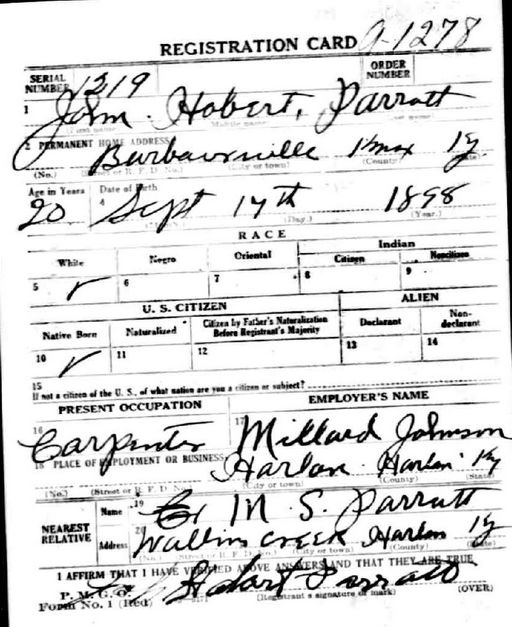 REGISTRATION CARD A-1278
SERIAL NUMBER 1219 ORDER NUMBER
1 John Hobert, Parrott
2 PERMANENT HOME ADDRESS
Barbourville Knox Ky
(No.) (Street or R. F. D. No.) (City or town) (County) (State)
Age in Years Date of Birth
20 4 Sept 17th 1898
(Day.) (Year.)
RACE
White Negro Oriental Indian
Citizen Noncitizen
5 ✓ 6 7 8 9
U. S. CITIZEN ALIEN
Native Born Naturalized Citizen by Father's Naturalization Before Registrant's Majority Declarant Non-declarant
10 ✓ 11 12 13 14
15
If not a citizen of the U. S., of what nation are you a citizen or subject?
PRESENT OCCUPATION EMPLOYER'S NAME
16 Carpenter 17 Millard Johnson
18 PLACE OF EMPLOYMENT OR BUSINESS
Harlan Harlan Ky
(No.) (Street or R. F. D. No.) (City or town) (County) (State)
NEAREST RELATIVE
Name 19 M. S. Parrott
Address 20 Wallins Creek Harlan Ky
(No.) (Street or R. F. D. No.) (City or town) (County) (State)
I AFFIRM THAT I HAVE VERIFIED ABOVE ANSWERS AND THAT THEY ARE TRUE
P. M. G. O.
Form No. 1 (Red) Hobart Parrott
(Registrant's signature or mark) (OVER)